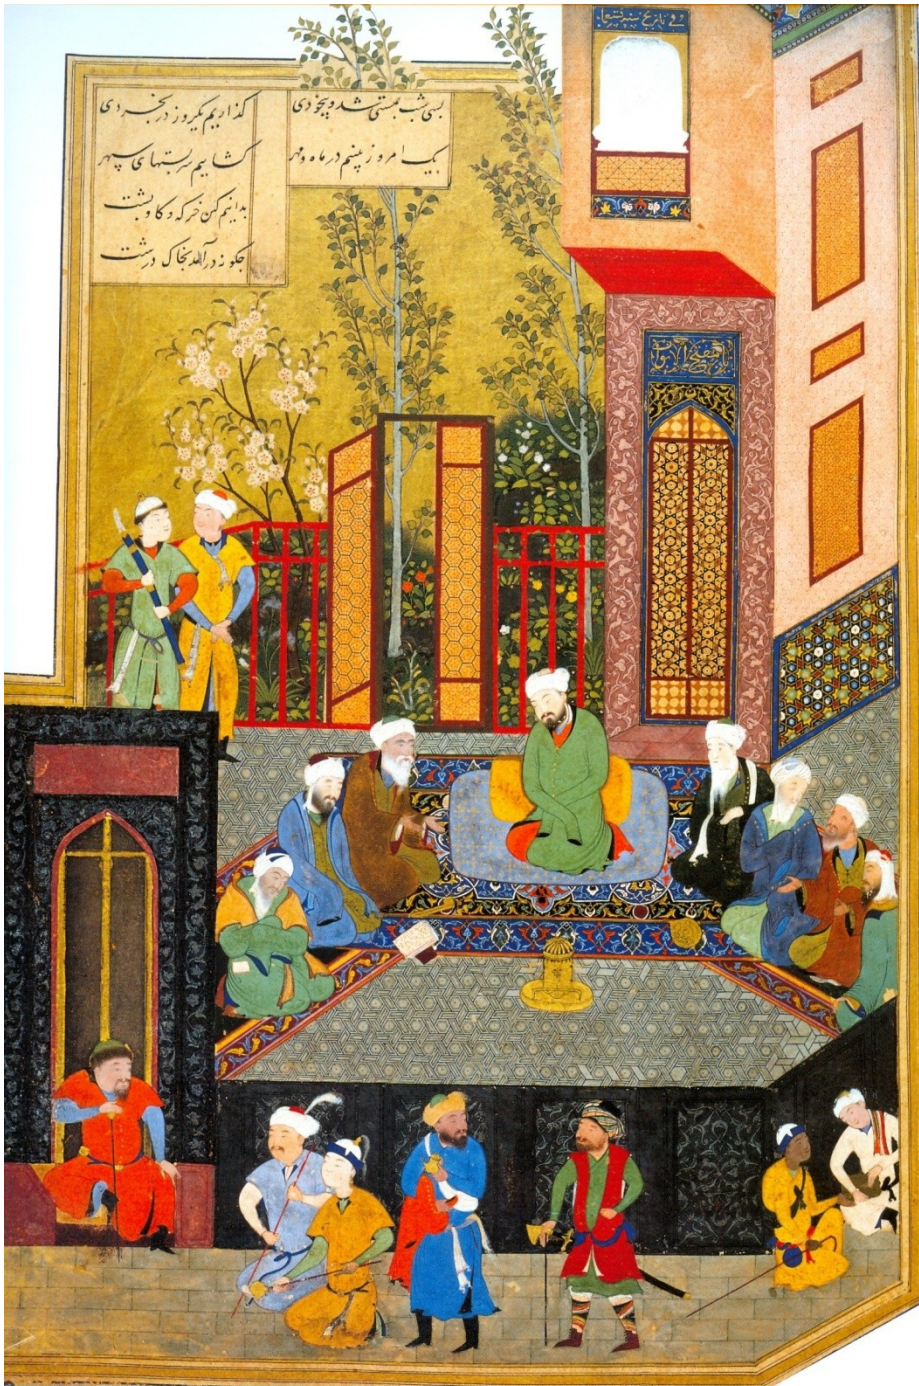 في تاريخ سنه
بسی شب بمستی شد و بیخودی گذاریم یکروز در بخردی
یک امروز بینیم در ماه و مهر گشاییم سربستهای سپهر
بدانیم کین خرکه کاو پشت
چگونه درآمد بخاک درشت
يا مفتح الابواب